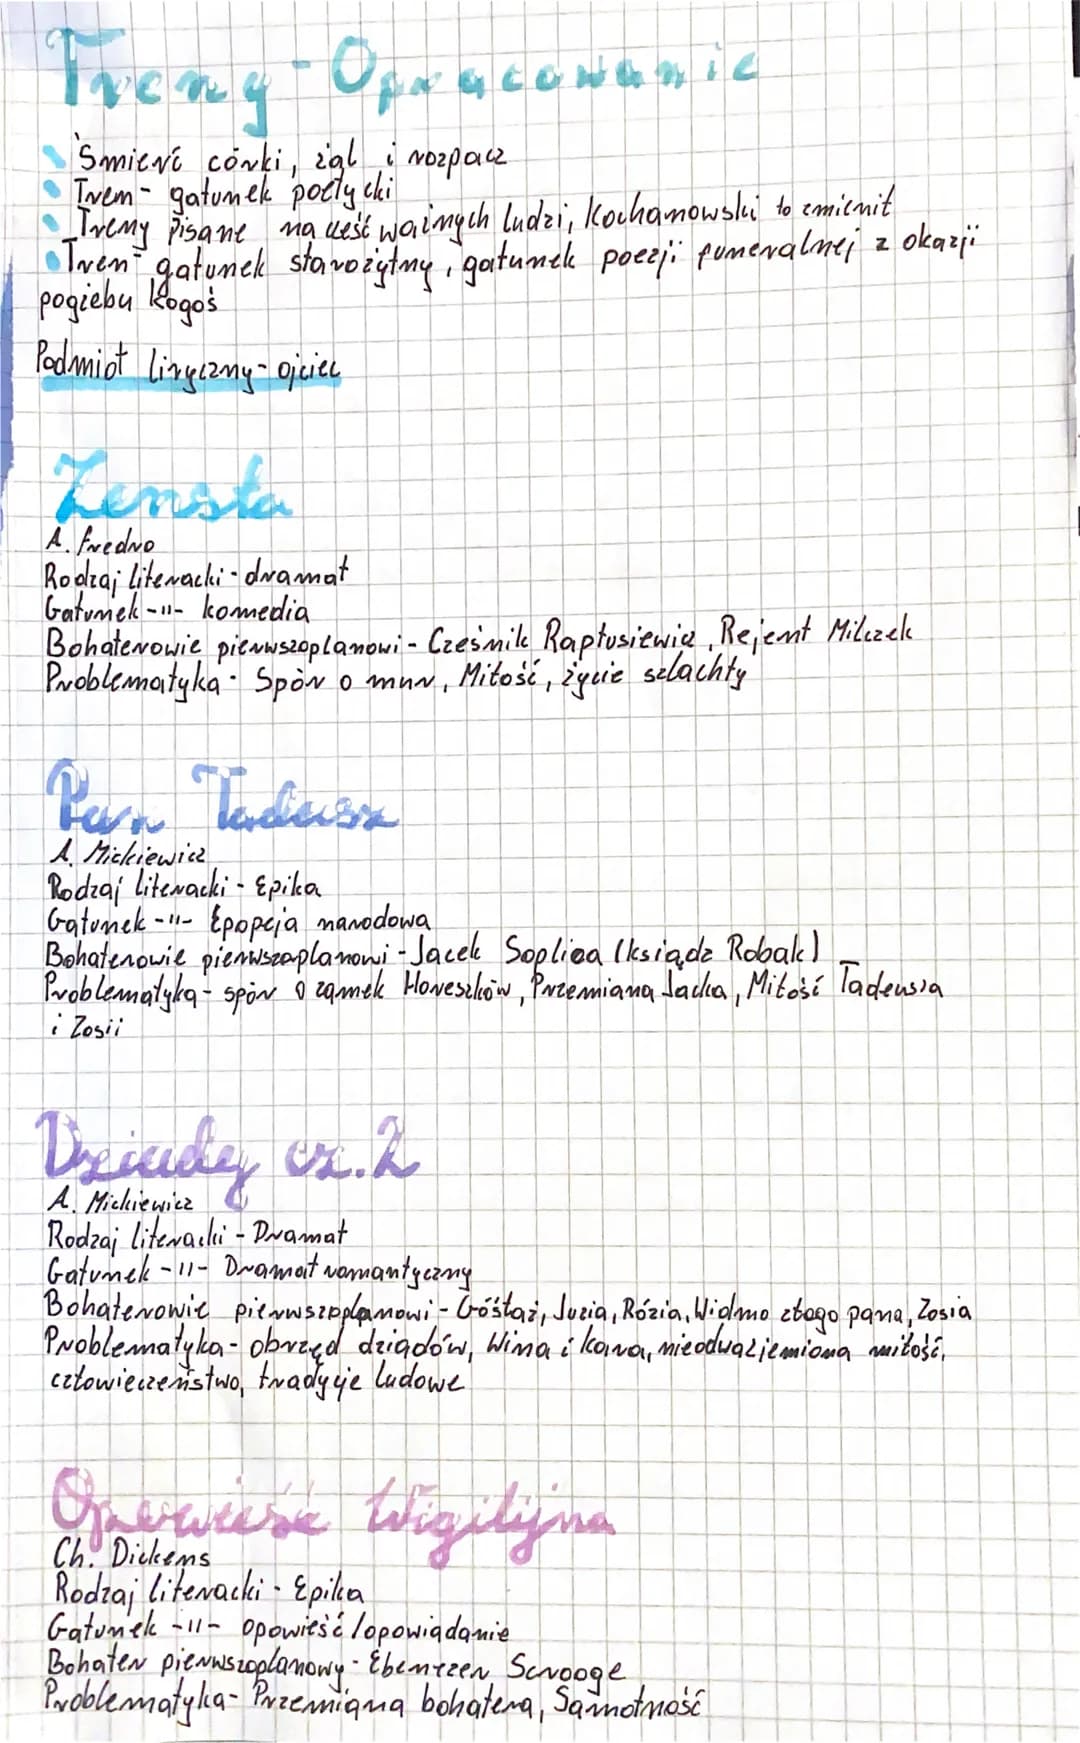 Treny - Opracowanie
Śmierć córki, żal i rozpacz
Tren - gatunek poetycki
Treny pisane na cześć ważnych ludzi, Kochanowski to zmienił
Tren - gatunek starożytny, gatunek poezji funeralnej z okazji
pogżebu kogoś
Podmiot liryczny - ojciec
Zemsta
A. Fredro
Rodzaj literacki - dramat
Gatunek -11- komedia
Bohaterowie pierwszoplanowi - Cześnik Raptusiewicz, Rejent Milczek
Problematyka - Spór o mur, Miłość, życie szlachty
Pan Tadeusz
A. Mickiewicz
Rodzaj literacki - Epika
Gatunek -11- Epopeja narodowa
Bohaterowie pierwszoplanowi - Jacek Soplica (ksiądz Robak)
Problematyka - spór o zamek Horeszków, Przemiana Jacka, Miłość Tadeusza
i Zosii
Dziady cz. 2
A. Mickiewicz
Rodzaj literacki - Dramat
Gatunek -11- Dramat romantyczny
Bohaterowie pierwszoplanowi - Góślaż, Juzia, Rózia, Widmo złego pana, Zosia
Problematyka - obrzęd dziadów, Wina i kara, nieodwzajemiona miłość,
człowieczeństwo, tradycje ludowe
Opowieść Wigilijna
Ch. Dickens
Rodzaj literacki - Epika
Gatunek -11- opowieść/opowiadanie
Bohater pierwszoplanowy - Ebenezer Scrooge
Problematyka - Przemiana bohatera, Samotność